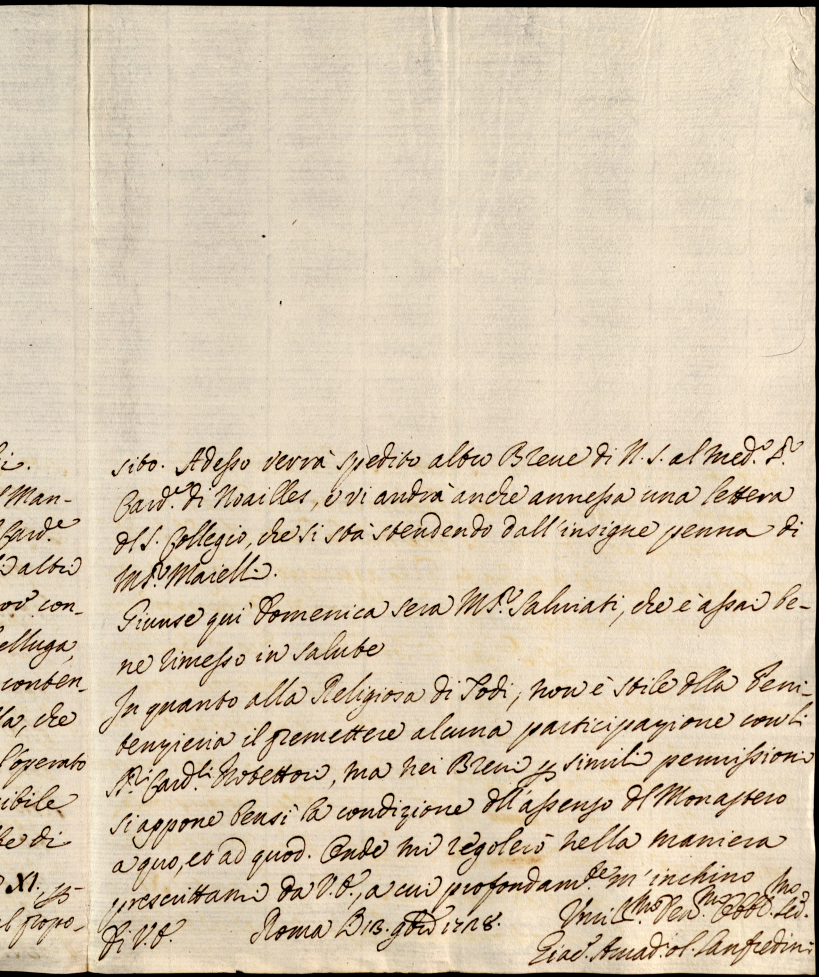 i.
Man-
Card.e
altro
con-
elluga,
conten-
la, che
l'operato
cibile
di
XI.
al propo-
sito. Adesso verrà spedito altro Breve di N. S. al med.o S.r
Card.e di Noailles, e vi andrà anche annessa una lettera
dl S. Collegio, che si stà stendendo dall'insigne penna di
M.r Maielli.
Giunse quì Domenica sera M.r Salviati, che è assai be-
ne rimesso in salute
In quanto alla Religiosa di Todi, non è stile dlla Peni-
tenzieria il premettere alcuna participazione con li
S.ri Card.li Protettori, ma nei Brevi p simili permissioni
si appone bensì la condizione dll'assenso dl Monastero
a quo, et ad quod. Onde mi regolerò nella maniera
prescrittami da V.E., a cui profondam.te m'inchino
Di V.E. Roma 13. 9bre 1728. Umil.mo Dev.mo Obbl.mo Ser.
Giac.o Amad.o Lanfredini